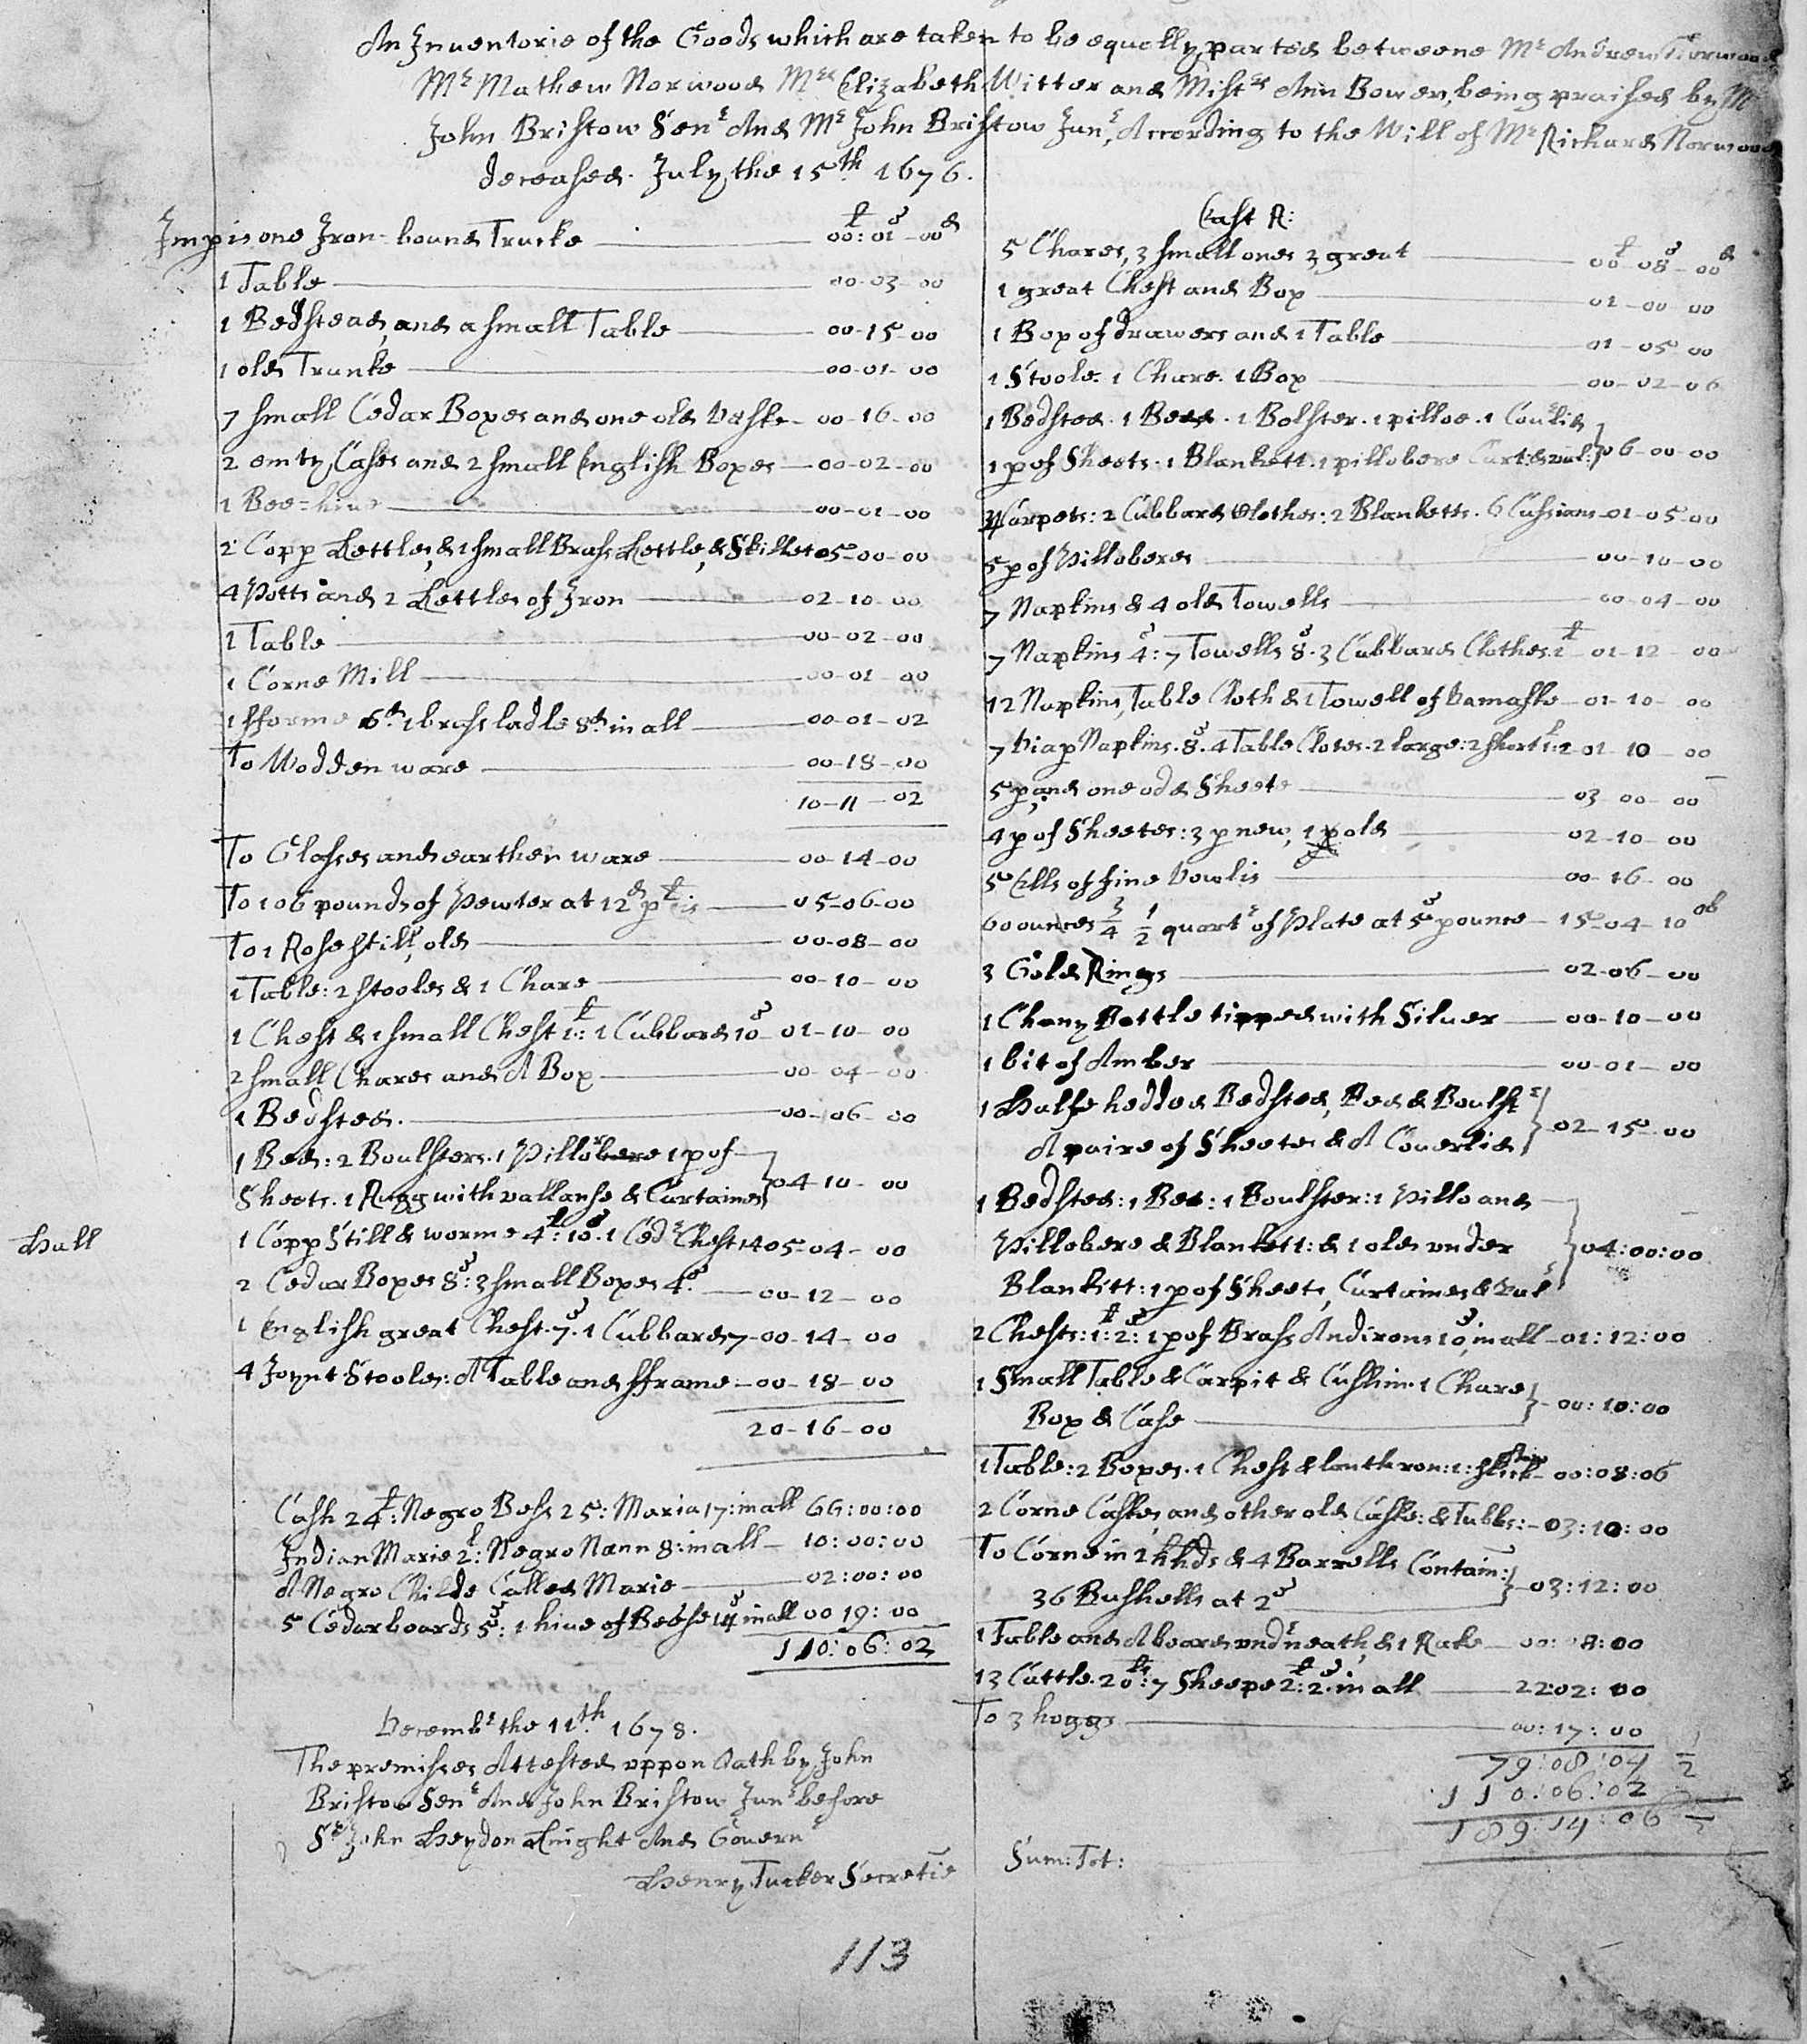 An Inventorie of the Goods which are taken to be equally parted betweene Mr Andrew Norwood
Mr Mathew Norwood Mrs Elizabeth Witter and Mistrs Ann Bowen, being praised by Mr
John Bristow Senr And Mr John Bristow Junr, According to the Will of Mr Richard Norwood
deceased. July the 15th 1676.
Impis one Iron-bound Trucke 00:01-00
£ s d
1 Table 00-03-00
1 Bedstead, and a small Table 00-15-00
1 old Trunke 00-01-00
7 small Cedar Boxes and one old Deske 00-16-00
2 emty Cases and 2 small English Boxes 00-02-00
1 Bee=hive 00-01-00
2 Copp Kettles, & 1 small Brass Kettle, & Skillet 05-00-00
4 Potts and 2 Kettles of Iron 02-10-00
1 Table 00-02-00
1 Corne Mill 00-01-00
1 fforme 6d 1 brass ladle 8d in all 00-01-02
To Wodden ware 00-18-00
10-11-02
To Glasses and earthen ware 00-14-00
To 106 pounds of Pewter at 12d p £ is 05-06-00
To 1 Rose still, old 00-08-00
1 Table: 2 stooles & 1 Chare 00-10-00
1 Chest & 1 small Chest 1£: 1 Cubbard 10s 01-10-00
2 small Chares and A Box 00-04-00
1 Bedsted. 00-06-00
1 Bed: 2 Boulsters. 1 Pillobere 1 p of
Sheets. 1 Rugg with vallanse & Curtaines 04-10-00
Hall
1 Copp Still & worme 4£:10s. 1 Cedr Chest 14 05-04-00
2 Cedar Boxes 8s: 3 small Boxes 4s 00-12-00
1 English great Chest. 7s. 1 Cubbard 7 00-14-00
4 Joynt Stooles: A Table and fframe 00-18-00
20-16-00
Cash 24£: Negro Bess 25: Maria 17: in all 66:00:00
Indian Marie 2£: Negro Nann 8: in all 10:00:00
A Negro Childe Called Marie 02:00:00
5 Cedar boards 5s: 1 hive of Beese 14s in all 00 19:00
110:06:02
Decembr the 11th 1678.
The premisses Attested uppon Oath by John
Bristow Senr And John Bristow Junr before
Sr John Heydon Knight And Governr
Henry Tucker Secretie
East R:
£ s d
5 Chares, 3 small ones 2 great 00-08-00
1 great Chest and Box 01-00-00
1 Box of drawers and 1 Table 01-05-00
1 Stoole. 1 Chare. 1 Box 00-02-06
1 Bedsted. 1 Bedd. 1 Bolster. 1 pilloe. 1 Coverlid
1 p of Sheets. 1 Blankett. 1 pillobere Curt: & val: 06-00-00
Carpets: 2 Cubbard Clothes: 2 Blanketts. 6 Cussians 01-05-00
5 p of Pilloberes 00-10-00
7 Napkins & 4 old Towells 00-04-00
7 Napkins 4s: 7 Towells 8s. 3 Cubbard Clothes: 1£ 01-12-00
12 Napkins, Table Cloth & 1 Towell of Damaske 01-10-00
7 Diap Napkins. 8s. 4 Table Clotes. 2 large: 2 short 1:2 01-10-00
5 p, and one odd Sheete 03 00-00
4 p of Sheetes: 3 p new, 1 p old 02-10-00
5 Ells of fine Dowlis 00-16-00
60 ounces 3/4 1/2 quartr of Plate at 5s p ounce 15-04-10 ob
3 Gold Rings 02-06-00
1 Cheny Bottle tipped with Silver 00-10-00
1 bit of Amber 00-01-00
1 Halfe hedded Bedsted, Bed & Boulstr
A paire of Sheetes & A Coverlid 02-15-00
1 Bedsted: 1 Bed: 1 Boulster: 1 Pillo and
Pillobere & Blankett: & 1 old under
Blankitt: 1 p of Sheets, Curtaines & Val 04:00:00
2 Chests: 1£: 2s: 1 p of Brass Andirons 10s, in all 01:12:00
1 Small Table & Carpit & Cushine. 1 Chare
Box & Case 00:10:00
1 Table: 2 Boxes. 1 Chest & lantkron: 1: 00:08:06
2 Corne Caskes, and other old Caske: & Tubbs: 03:10:00
To Corne in 2 hhds & 4 Barrells Contain:
36 Bushells at 2s 03:12:00
1 Table and A board undrneath, & 1 Rake 00:08:00
13 Cattle. 20£: 7 Sheepe 2£: 2s. in all 22:02:00
To 3 hoggs 00:17:00
79:08:04 1/2
110:06:02
189:14:06 1/2
Sum: Tot:
113